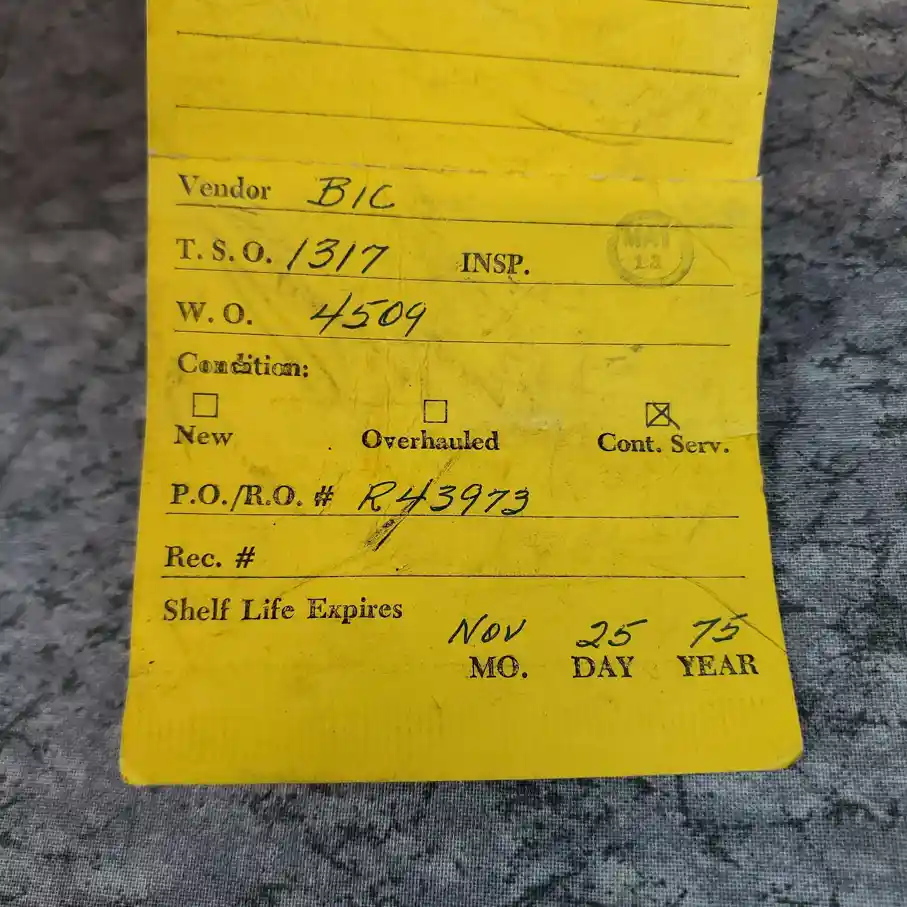 Vendor BIC
T. S. O. 1317 INSP. MAT 13
W. O. 4509
Condition:
New Overhauled Cont. Serv.
P.O./R.O. # R43973
Rec. #
Shelf Life Expires
Nov 25 75
MO. DAY YEAR